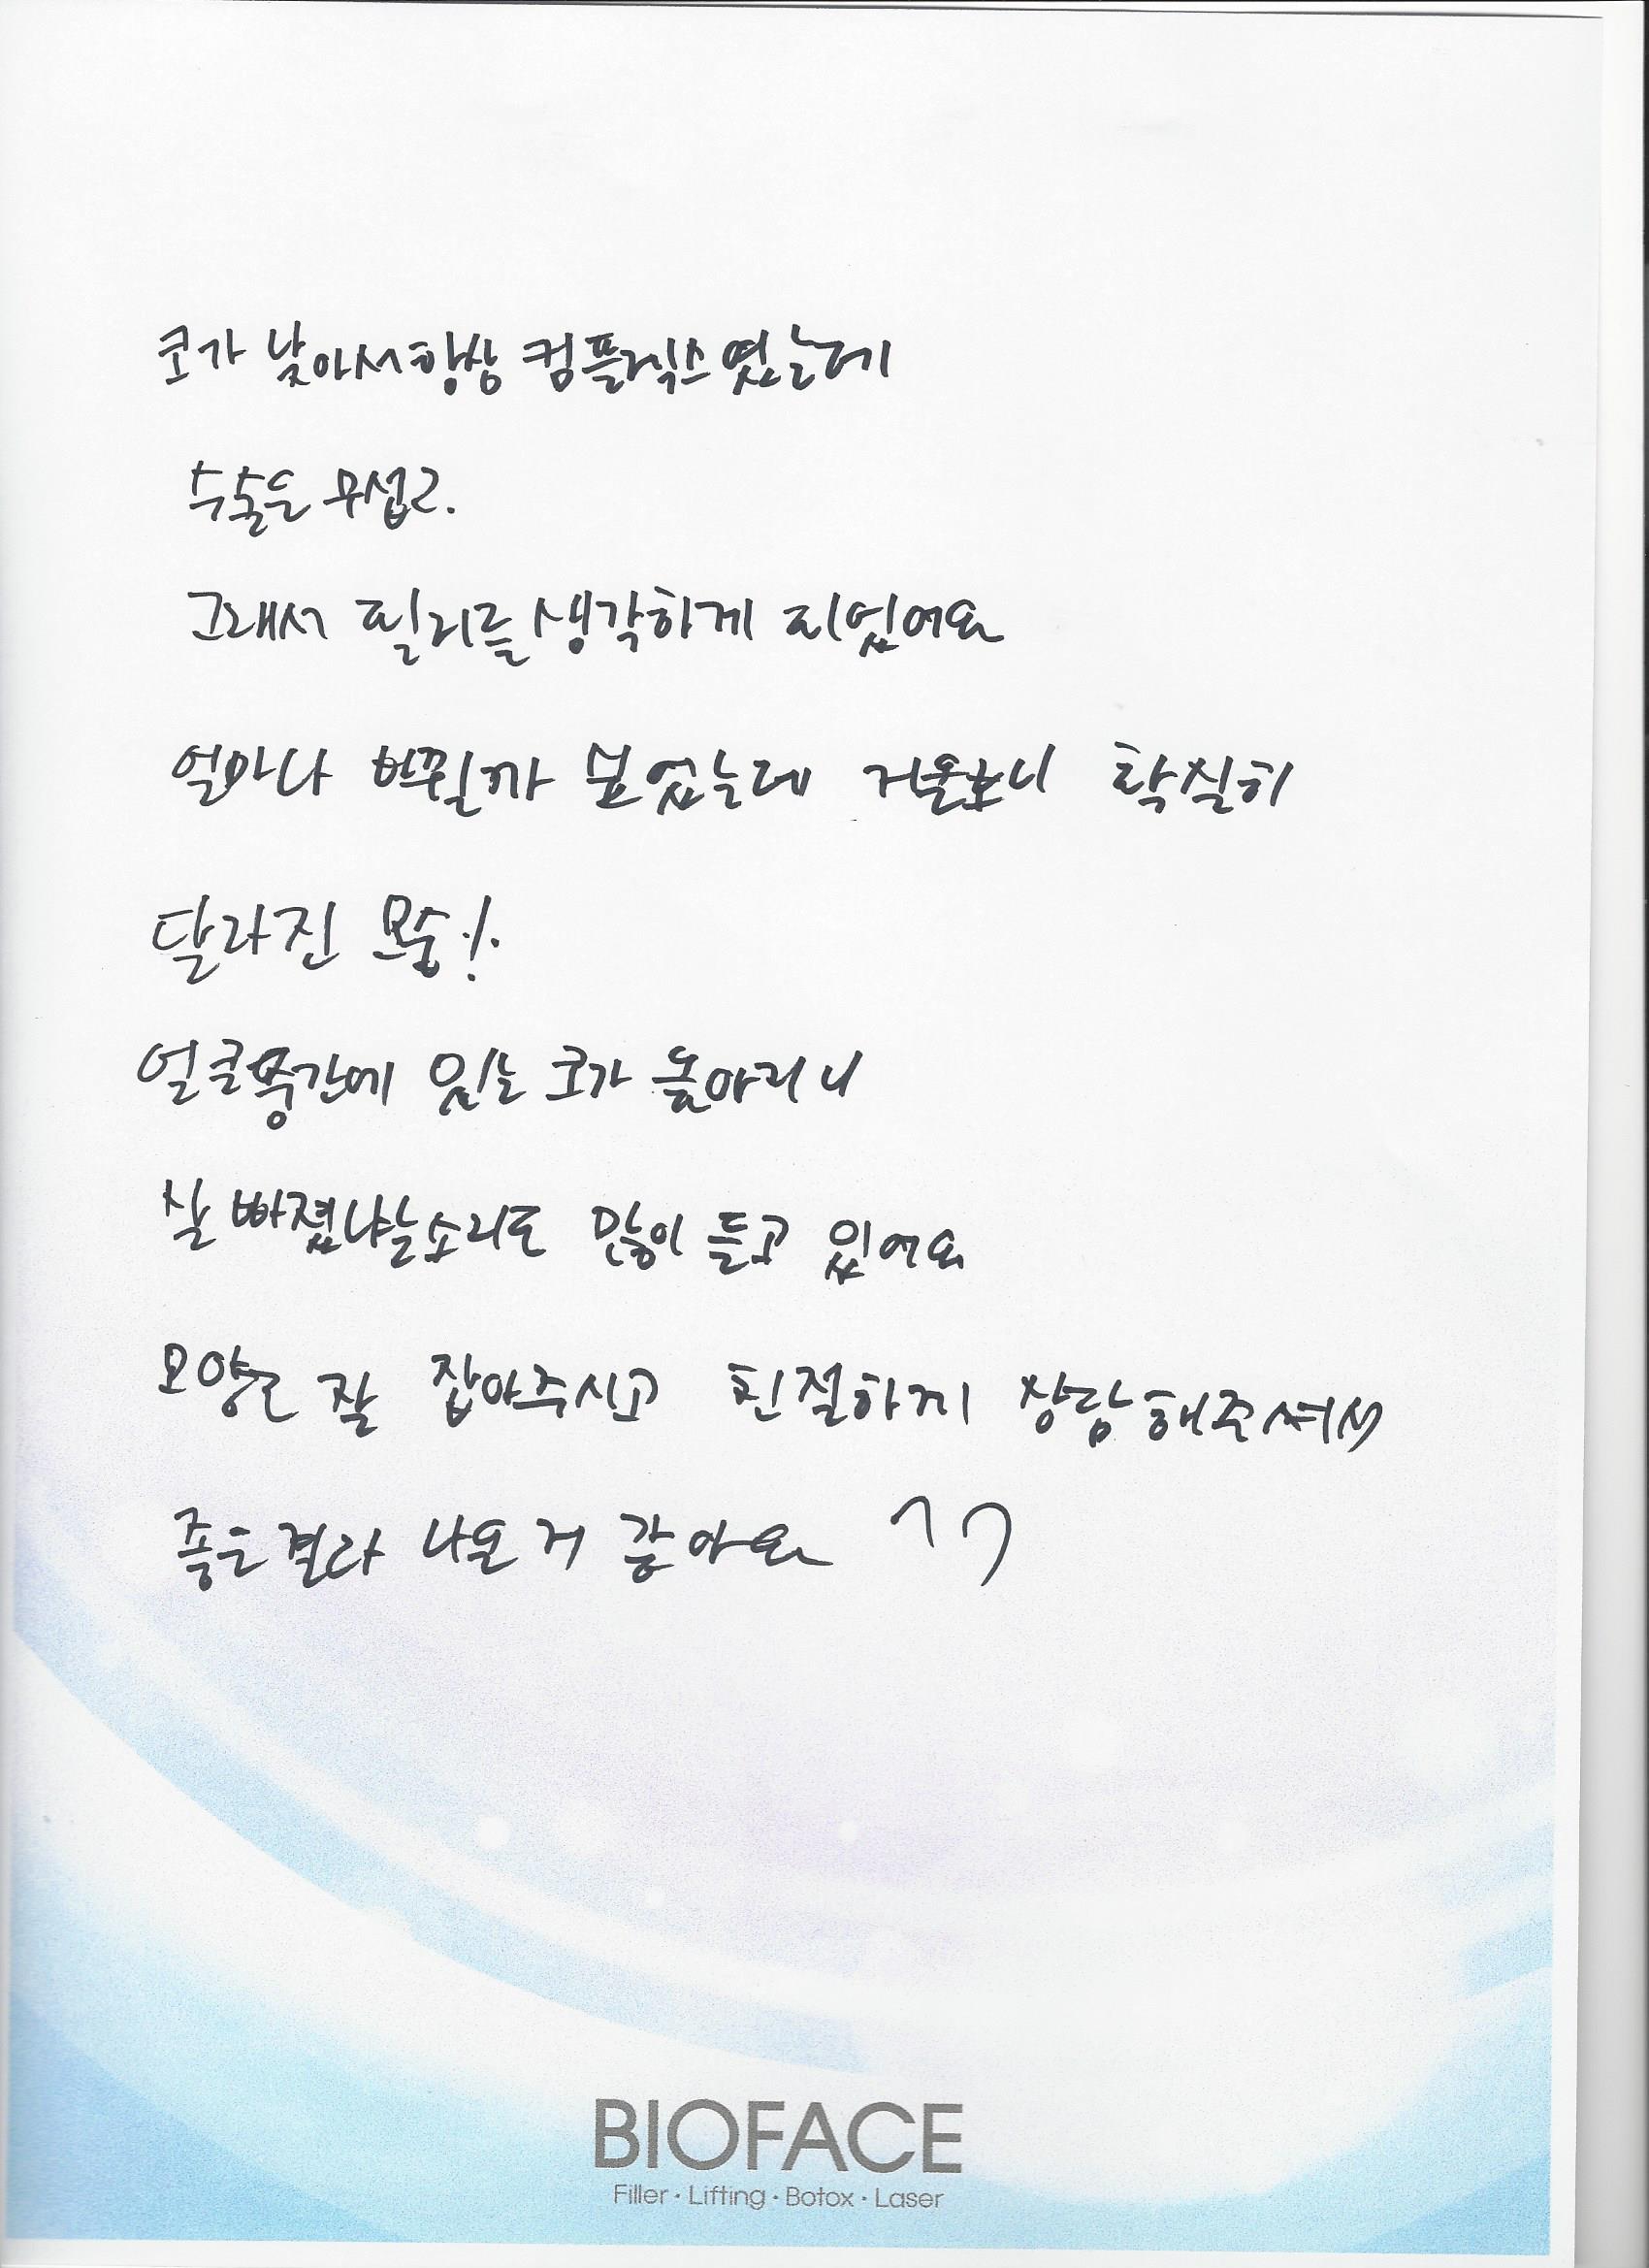 코가 낮아서 항상 컴플렉스였는데
수술은 무섭고.
그래서 필러를 생각하게 되었어요
얼마나 바뀔까 싶었는데 거울보니 확실히
달라진 모습!
얼굴중간에 있는 코가 높아지니
살 빠졌냐는 소리도 많이 듣고 있어요
모양도 잘 잡아주시고 친절하게 상담해주셔서
좋은결과 나온 거 같아요 ^^
BIOFACE
Filler · Lifting · Botox · Laser